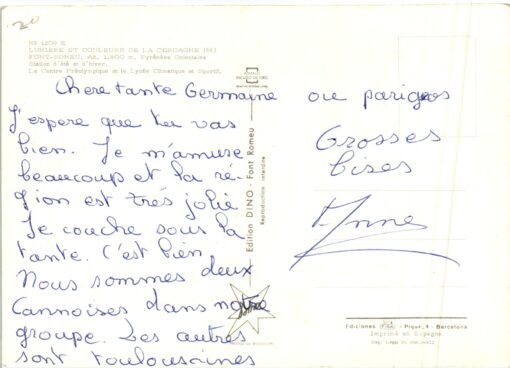 20
Nº 1209 E
LUMIÈRE ET COULEURS DE LA CERDAGNE (66)
FONT-ROMEU, Alt. 1.800 m. Pyrénées Orientales
Station d'été et d'hiver.
Le Centre Préolympique et le Lycée Climatique et Sportif.
Chere tante Germaine
J'espere que tu vas
bien. Je m'amuse
beaucoup et la ré-
gion est très jolie
Je couche sous la
tante. C'est bien
Nous sommes deux
Cannoises dans notre
groupe. Les autres
sont toulousaines
ou parigos
Grosses
bises
Anne
Edition DINO - Font Romeu
Reproduction interdite
Ediciones FISA - Pique, 4 - Barcelona
Imprimé en Espagne